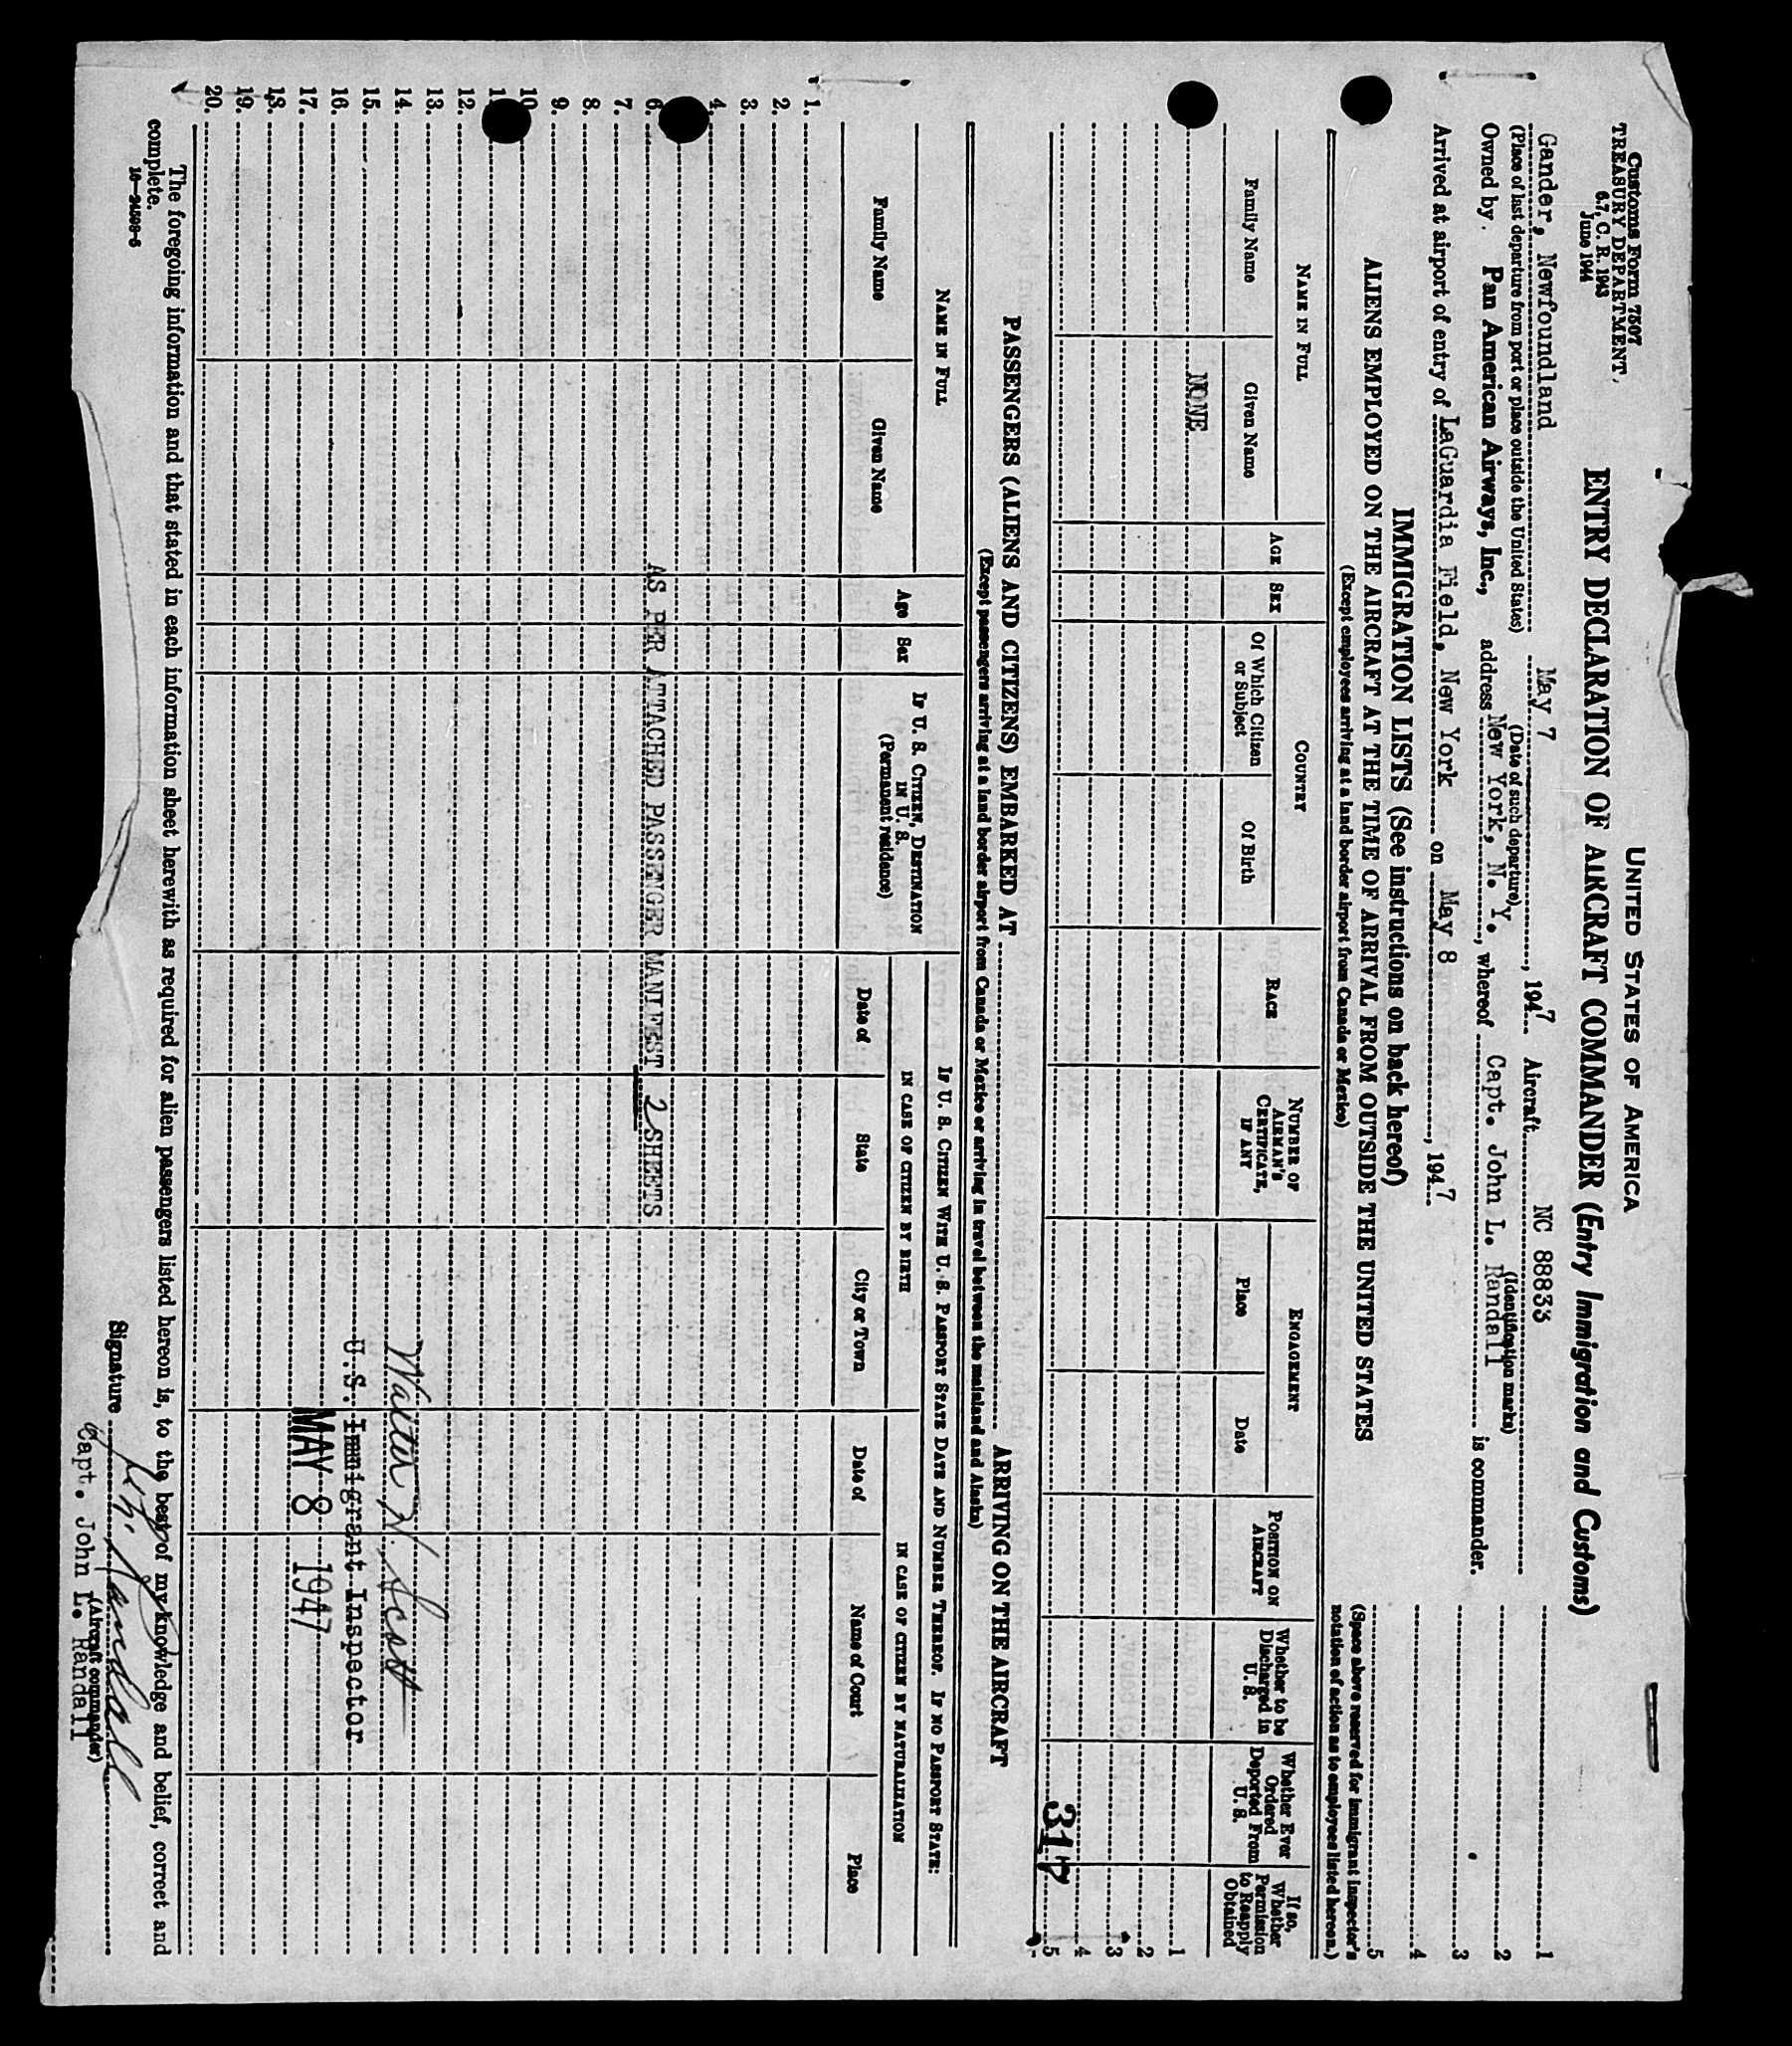 Customs Form 7507
TREASURY DEPARTMENT,
6.7, C. R. 1943
June 1944
UNITED STATES OF AMERICA
ENTRY DECLARATION OF AIRCRAFT COMMANDER (Entry Immigration and Customs)
Gander, Newfoundland May 7, 1947 Aircraft NC 88833
(Place of last departure from port or place outside the United States) (Date of such departure) (Identification marks)
Owned by Pan American Airways, Inc., address New York, N. Y., whereof Capt. John L. Randall is commander.
Arrived at airport of entry of LaGuardia Field, New York on May 8, 1947.
1
2
3
4
5
(Space above reserved for immigrant inspector's notation of action as to employees listed hereon.)
IMMIGRATION LISTS (See instructions on back hereof)
ALIENS EMPLOYED ON THE AIRCRAFT AT THE TIME OF ARRIVAL FROM OUTSIDE THE UNITED STATES
(Except employees arriving at a land border airport from Canada or Mexico)
NAME IN FULL
Family Name
Given Name
AGE
SEX
COUNTRY
Of Which Citizen or Subject
Of Birth
RACE
NUMBER OF AIRMAN'S CERTIFICATE, IF ANY
ENGAGEMENT
Place
Date
POSITION ON AIRCRAFT
Whether to be Discharged in U. S.
Whether Ever Ordered Deported From U. S.
If so, Whether Permission to Reapply Obtained
NONE
1
2
3
4
5
317
PASSENGERS (ALIENS AND CITIZENS) EMBARKED AT ARRIVING ON THE AIRCRAFT
(Except passengers arriving at a land border airport from Canada or Mexico or arriving in travel between the mainland and Alaska)
NAME IN FULL
Family Name
Given Name
Age
Sex
IF U. S. CITIZEN, DESTINATION IN U. S.
(Permanent residence)
IF U. S. CITIZEN WITH U. S. PASSPORT STATE DATE AND NUMBER THEREOF. IF NO PASSPORT STATE:
IN CASE OF CITIZEN BY BIRTH
IN CASE OF CITIZEN BY NATURALIZATION
Date of
State
City or Town
Date of
Name of Court
Place
1.
2.
3.
4.
6.
AS PER ATTACHED PASSENGER MANIFEST 2 SHEETS
7.
8.
9.
10.
12.
13.
14.
Walter N. Scott
15.
U.S. Immigrant Inspector
16.
17.
MAY 8 1947
18.
19.
20.
The foregoing information and that stated in each information sheet herewith as required for alien passengers listed hereon is, to the best of my knowledge and belief, correct and
complete.
16—24598-5
Signature John L. Randall
(Aircraft commander)
Capt. John L. Randall